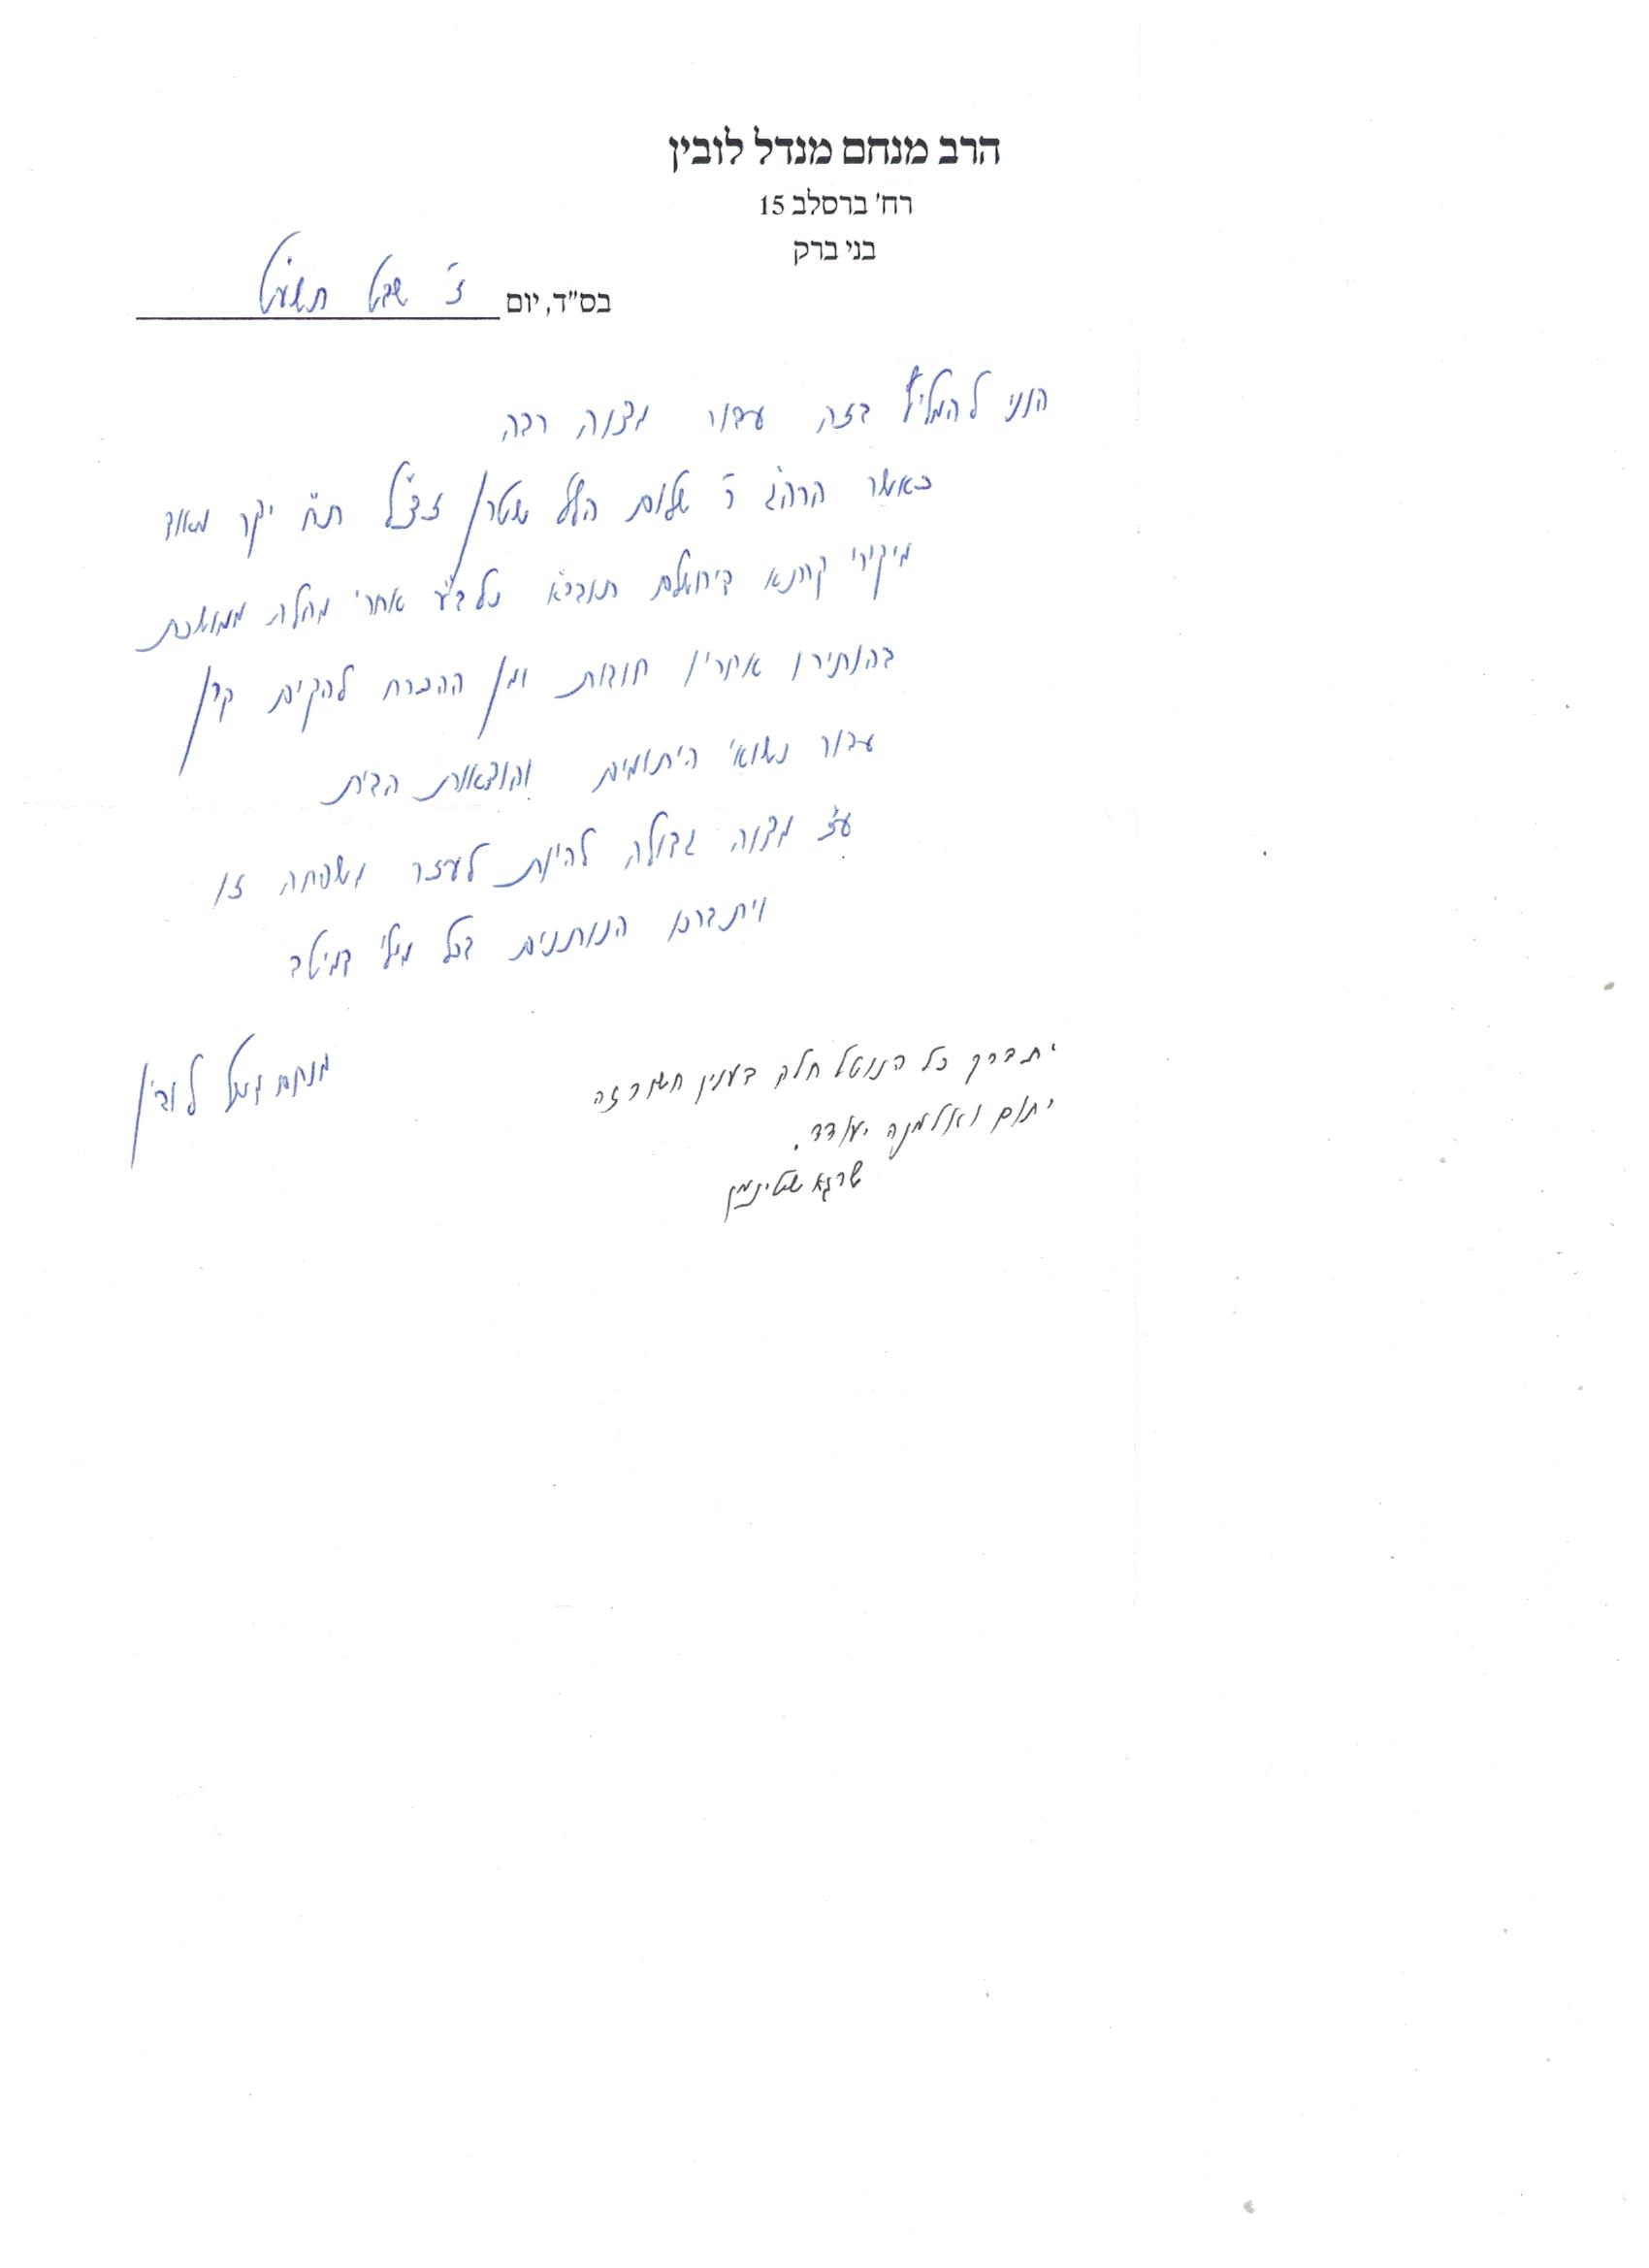 הרב מנחם מנדל לובין
רח' ברסלב 15
בני ברק
בס"ד, יום ז' שבט תשע"ט
הנני להמליץ בזה עבור מצוה רבה
כאשר הרה"ג ר' שלום הלל שטרן זצ"ל ת"ח יקר מאוד
מיקירי קרתא בירושלם תובב"א נלב"ע אחרי מחלה ממארת
בהותירו אחריו חובות ומן ההכרח להקים קרן
עבור נשואי היתומים והוצאות הבית
ע"כ מצוה גדולה להיות לעזר משפחה זו
ויתברכו הנותנים בכל מילי דמיטב
מנחם מנדל לובין
יתברך כל הנוטל חלק בענין חשוב זה
יתום ואלמנה יעודד.
שרגא שטינמן